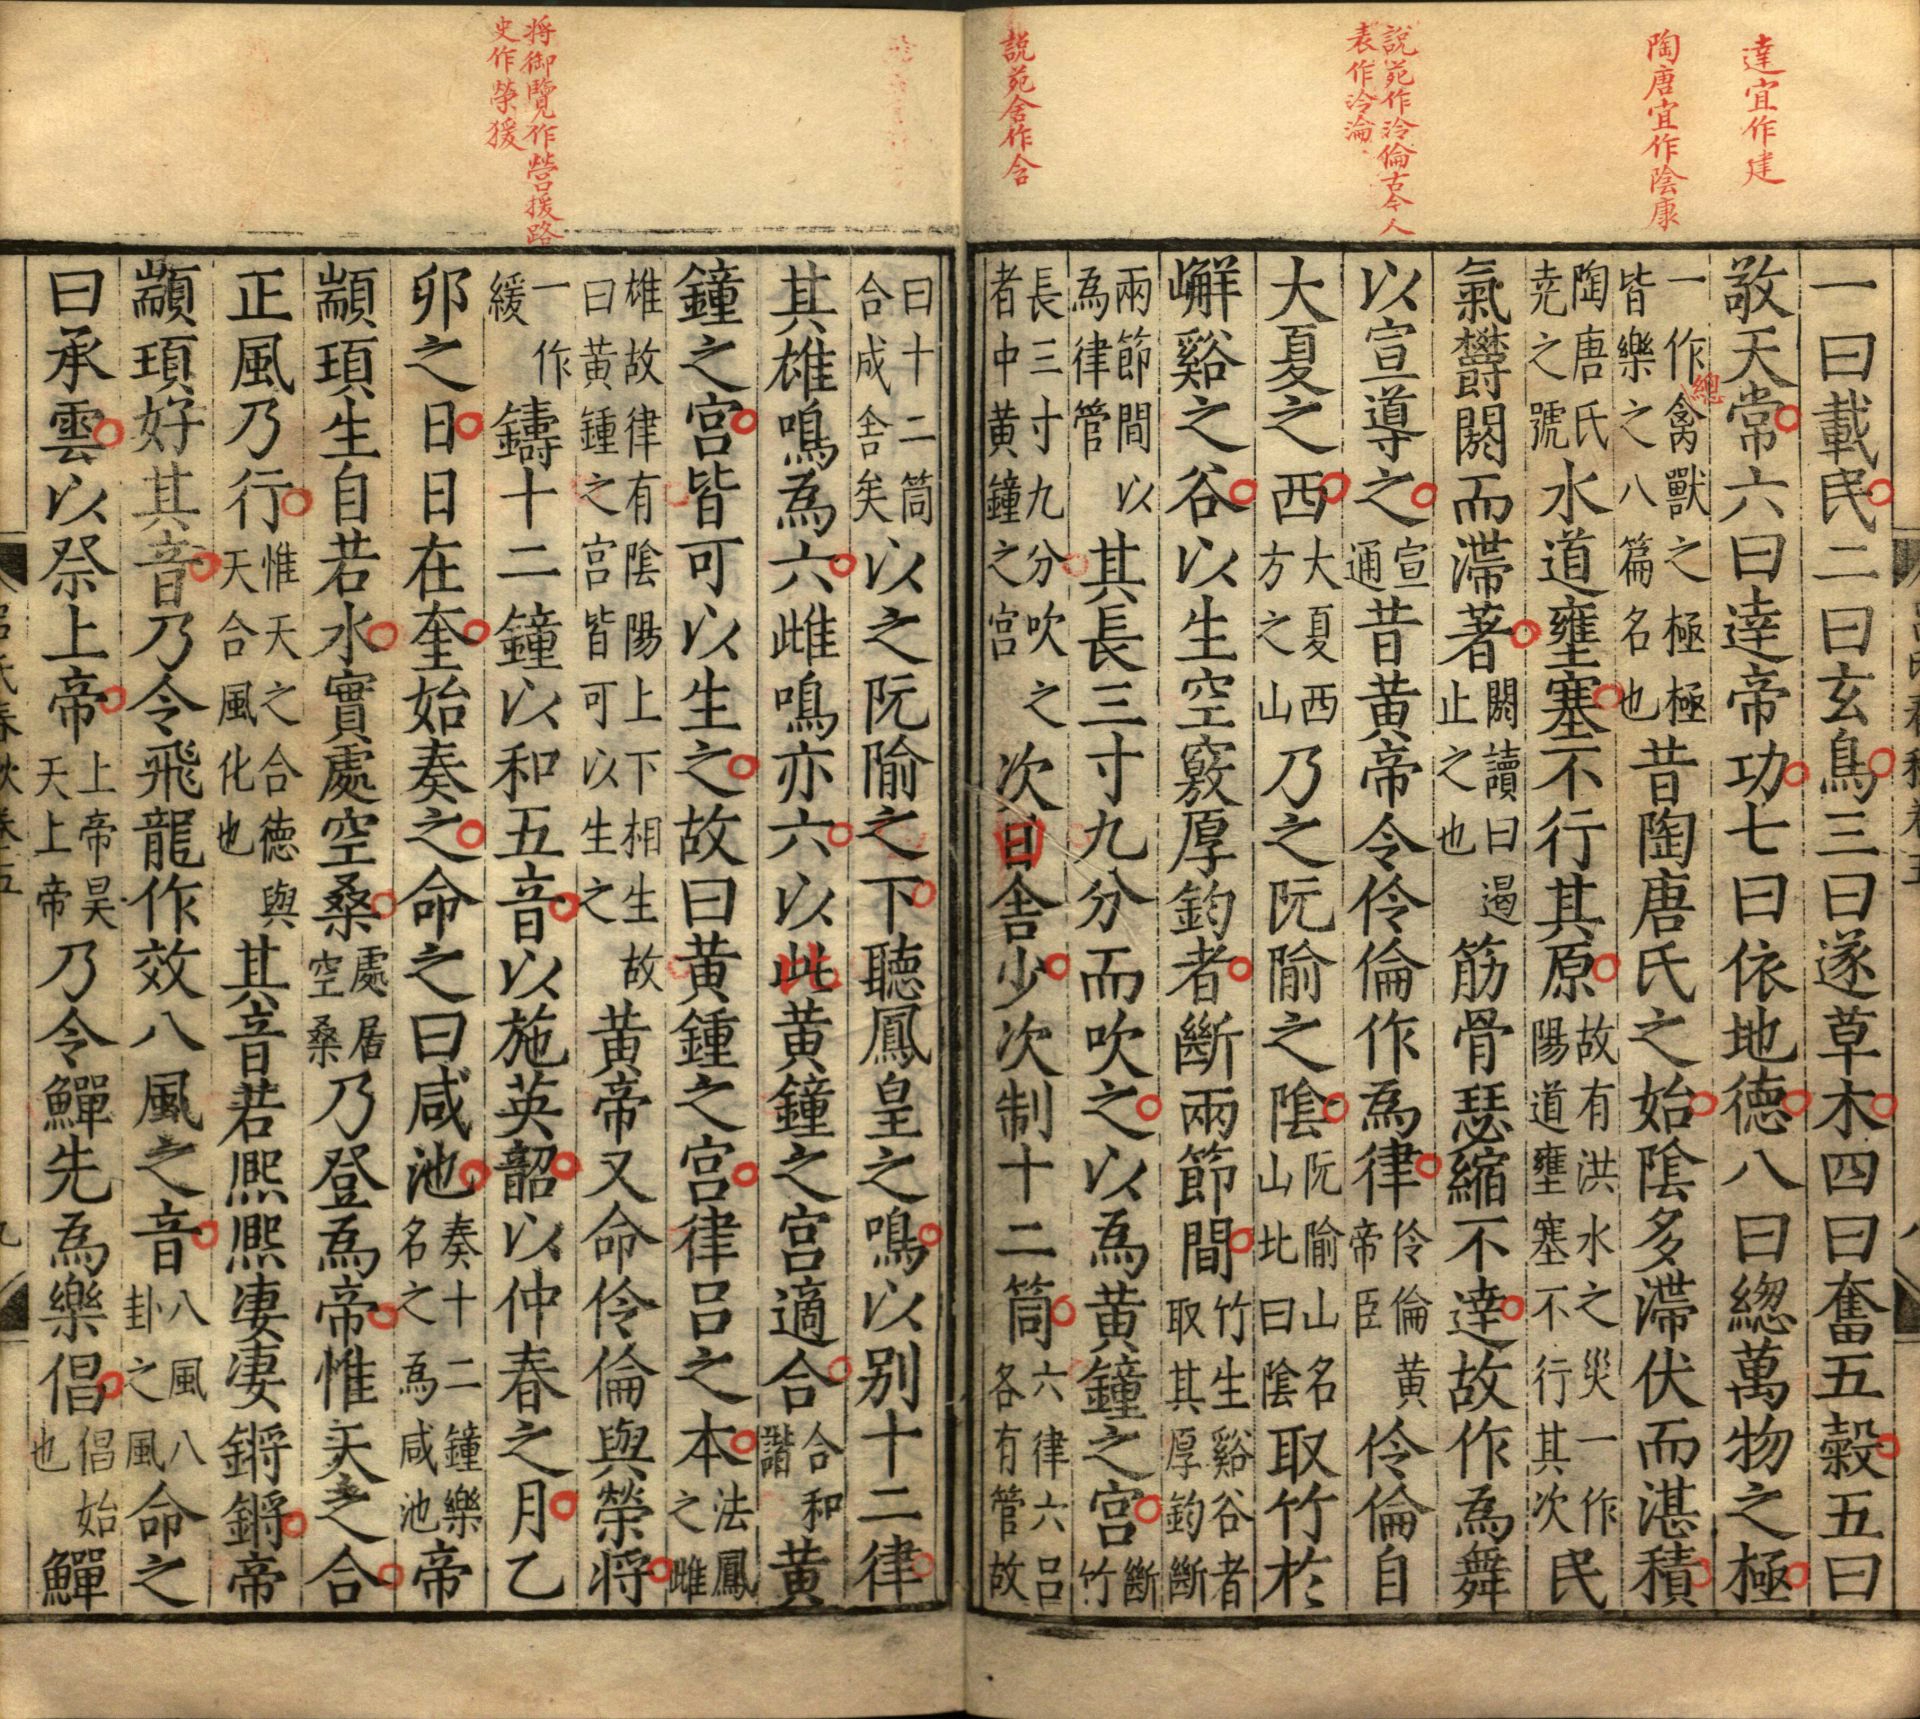 達宜作建
陶唐宜作陰康
說苑作泠倫古今人
表作泠淪
說苑舍作含
一曰載民二曰玄鳥三曰遂草木四曰奮五穀五曰
敬天常六曰達帝功七曰依地德八曰緫萬物之極
一作禽獸之極極
總
皆樂之八篇名也
昔陶唐氏之始陰多滯伏而湛積
陶唐氏
堯之號
水道壅塞不行其原
故有洪水之災一作
陽道壅塞不行其次
民
氣欝閼而滯著
閼讀曰遏
止之也
筋骨瑟縮不達故作為舞
以宣導之
宣
通
昔黃帝令伶倫作為律
伶倫黃
帝臣
伶倫自
大夏之西
大夏西
方之山
乃之阮隃之陰
阮隃山名
山北曰陰
取竹於
嶰谿之谷以生空竅厚鈞者
斷兩節間
竹生谿谷者
取其厚鈞斷
兩節間以
為律管
其長三寸九分而吹之以為黃鐘之宮
斷
竹
長三寸九分吹之
者中黃鐘之宮
次曰舍少次制十二筒
六律六呂
各有管故
將御覽作營援路
史作榮猨
曰十二筒
合成舍矣
以之阮隃之下聽鳳皇之鳴以別十二律
其雄鳴為六雌鳴亦六以此黃鐘之宮適合
合和
諧
黃
鐘之宮皆可以生之故曰黃鍾之宮律呂之本
法鳳
之雌
雄故律有陰陽上下相生故
曰黃鍾之宮皆可以生之
黃帝又命伶倫與榮將
一作
緩
鑄十二鐘以和五音以施英韶以仲春之月乙
卯之日日在奎始奏之命之曰咸池
奏十二鐘樂
名之為咸池
帝
顓頊生自若水實處空桑
處居
空桑
乃登為帝惟天之合
正風乃行
惟天之合德與
天合風化也
其音若熈熈凄凄鏘鏘帝
顓頊好其音乃令飛龍作效八風之音
八風八
卦之風
命之
曰承雲以祭上帝
上帝昊
天上帝
乃令鱓先為樂倡
倡始
也
鱓